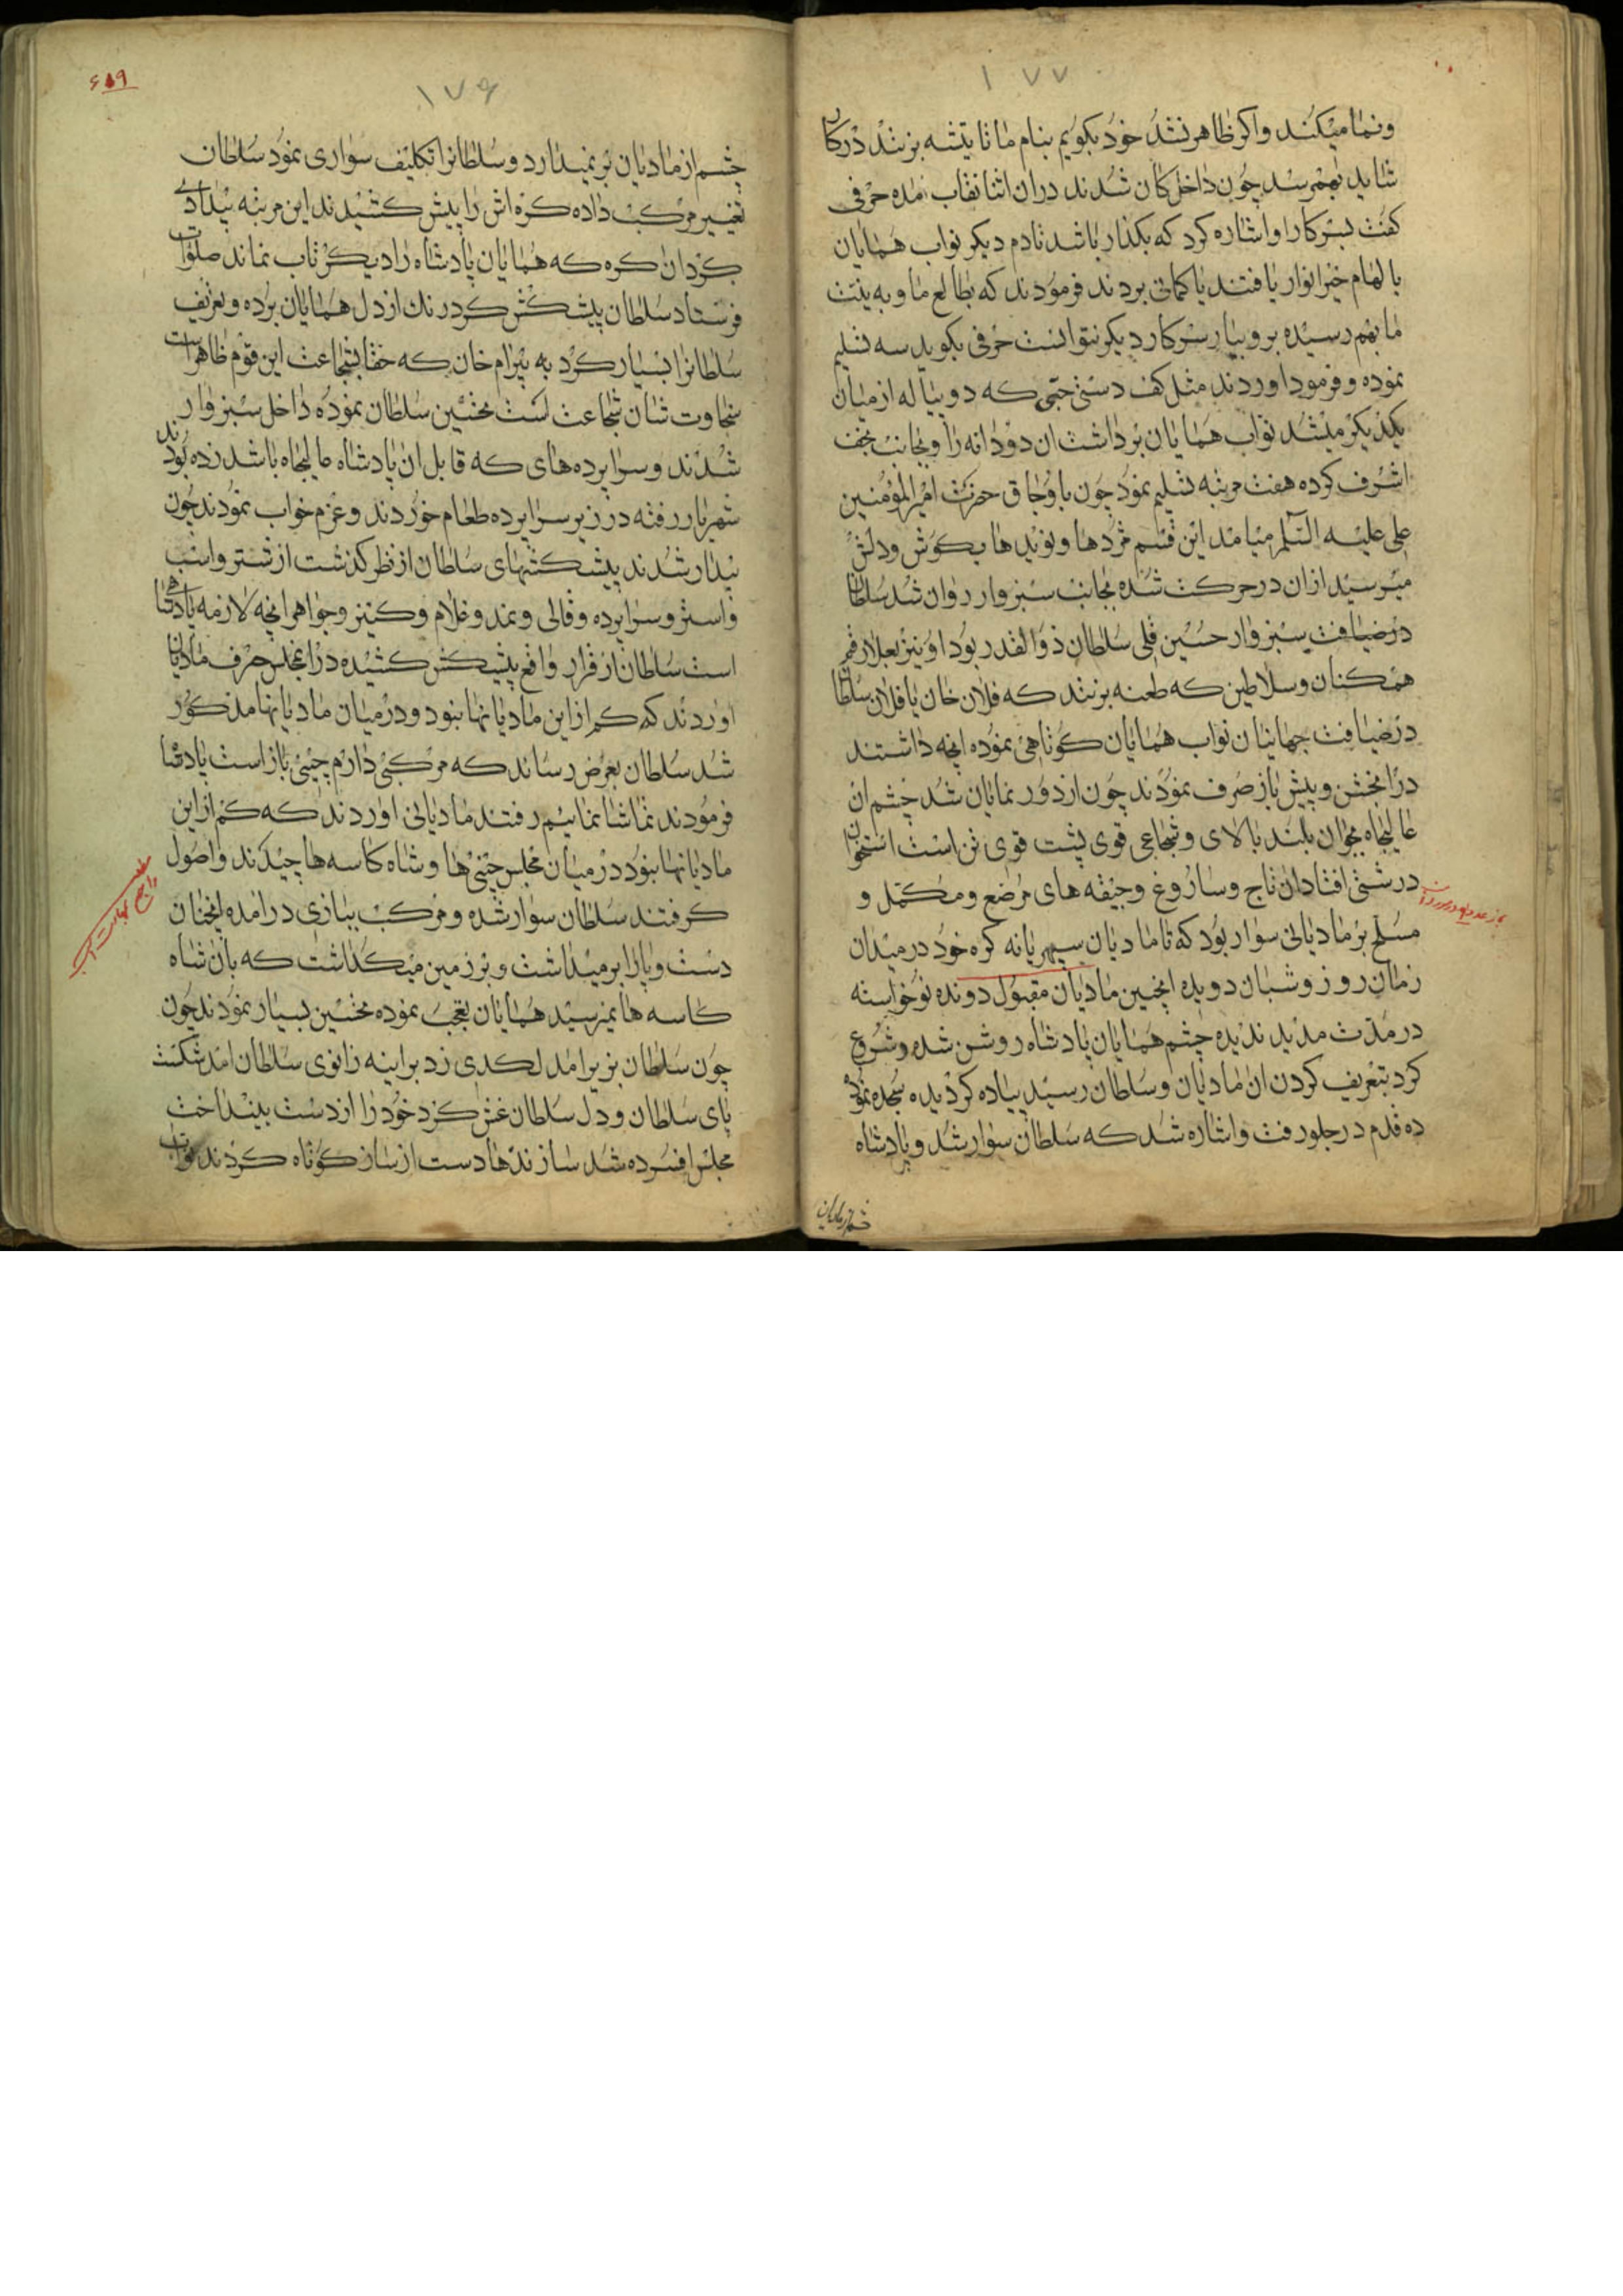 ۱۷۷
ونما میکنند واکر ظاهر نشد خود بکویم بنام ما تا تیشه بزنند در کان
شاید بهم رسد چون داخل کان شدند در ان اثنا نقاب امده حرفی
کفت بسرکار او اشاره کرد که بکذار باشد تا دم دیکر نواب همایان
با لهام خیر انوار یافتند یا کمانی بردند فرمودند که بطالع ما و به نیت
ما بهم رسیده برو بیار سرکار دیکر نتوانست حرفی بکوید سه تسلیم
نموده و فرمود اوردند مثل کف دستی حبّی که دو پیاله از میان
یکدیکر میشد نواب همایان برداشت ان دو دانه را و بجانب نجف
اشرف کرده هفت مرتبه تسلیم نمود چون با وجاق حضرت امیر المؤمنین
علی علیه السلم میامد این قسم مژدها و نویدها بکوش و دلش
میرسید از ان در حرکت شده بجانب سبزوار روان شد سلطان
در ضیافت سبزوار حسین قلی سلطان ذوالقدر بود او نیز رقم
همکنان و سلاطین که طعنه بزنند که فلان خان یا فلان سلطان
در ضیافت جهانیان نواب همایان کوتاهی نموده انچه داشتند
در انجشن و پیش باز صرف نمودند چون از دور نمایان شد چشم ان
عالیجاه بجوان بلند بالای و شجاعی قوی پشت قوی تن است استخوان
در شتی افتاد ان تاج و ساروغ و جیقه های مرضع و مکمّل و
مسلح بر مادیانی سوار بود که تا مادیان سپهر یانه کره خود در میدان
زمان روز و شبان دویده انچنین مادیان مقبول دونده نوخواسته
در مدّت مدید ندیده چشم همایان پادشاه روشن شده و شروع
کرد بتعریف کردن ان مادیان و سلطان رسید پیاده کردیده سجده نموده
ده قدم در جلو رفت و اشاره شد که سلطان سوار شد و پادشاه
چشم از مادیان
۶۱۹
۱۷۶
چشم از مادیان بر نمیدارد و سلطانرا تکلیف سواری نمود سلطان
تغییر مرکب داده کره اش را پیش کشیدند این مرتبه بیدادی
کرد ان کره که همایان پادشاه را دیکر تاب نماند صلوات
فرستاد سلطان پیشکش کرد رنک از دل همایان برده و تعریف
سلطانرا بسیار کرد به بیرام خان که حقا بشجاعت این قوم ظاهر است
سخاوت شان شجاعت است تحسین سلطان نموده داخل سبزوار
شدند و سرا پرده های که قابل ان پادشاه عالیجاه باشد زده بودند
شهریار رفته در زیر سرا پرده طعام خوردند و عزم خواب نمودند چون
بیدار شدند پیشکشهای سلطان از نظر کذشت از شتر و اسب
و استر و سرا پرده و قالی و نمد و غلام و کنیز و جواهر انچه لازمه پادشاهی
است سلطان از قرار واقع پیشکش کشیده در انمجلس حرف مادیان
اوردند که کم از این مادیانها نبود و در میان مادیانها مذکور
شد سلطان بعرض رساند که مرکبی دارم چینی باز است پادشا
فرمودند تماشا نمائیم رفتند مادیانی اوردند که کم از این
مادیانها نبود در میان مجلس چینی ها و شاه کاسه ها چیدند و اصول
کرفتند سلطان سوار شده و مرکب ببازی درامده انچنان
دست و پا را بر میداشت و بر زمین میکذاشت که بان شاه
کاسه ها نمیرسید همایان تعجب نموده تحسین بسیار نمودند چون
چون سلطان بزیر امد لکدی زد بر اینه زانوی سلطان امد شکست
پای سلطان و دل سلطان غش کرد خود را از دست بینداخت
مجلس افسرده شد سازندها دست از ساز کوتاه کردند نواب